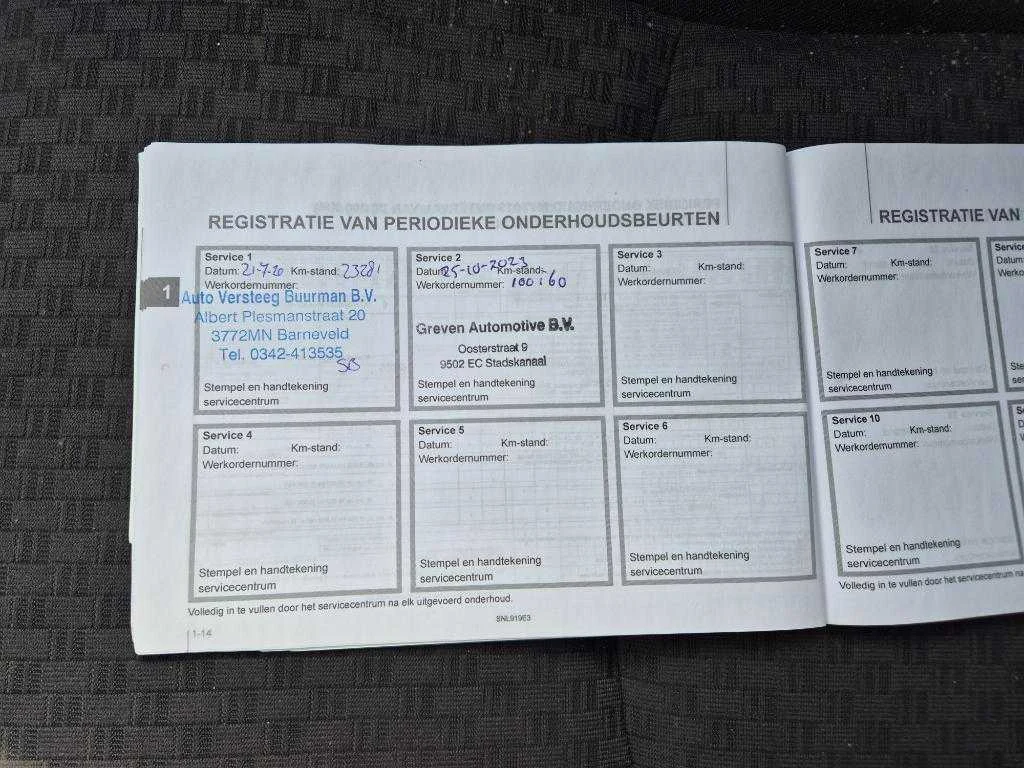 REGISTRATIE VAN PERIODIEKE ONDERHOUDSBEURTEN
Service 1
Datum: 21-7-20 Km-stand: 23281
Werkordernummer:
Auto Versteeg Buurman B.V.
Albert Plesmanstraat 20
3772MN Barneveld
Tel. 0342-413535
SB
Stempel en handtekening
servicecentrum
Service 2
Datum: 25-10-2023 Km-stand:
Werkordernummer: 100160
Greven Automotive B.V.
Oosterstraat 9
9502 EC Stadskanaal
Stempel en handtekening
servicecentrum
Service 3
Datum: Km-stand:
Werkordernummer:
Stempel en handtekening
servicecentrum
1
Service 4
Datum: Km-stand:
Werkordernummer:
Stempel en handtekening
servicecentrum
Service 5
Datum: Km-stand:
Werkordernummer:
Stempel en handtekening
servicecentrum
Service 6
Datum: Km-stand:
Werkordernummer:
Stempel en handtekening
servicecentrum
Volledig in te vullen door het servicecentrum na elk uitgevoerd onderhoud.
SNL919E3
1-14
REGISTRATIE VAN
Service 7
Datum: Km-stand:
Werkordernummer:
Stempel en handtekening
servicecentrum
Service 10
Datum: Km-stand:
Werkordernummer:
Stempel en handtekening
servicecentrum
Volledig in te vullen door het servicecentrum na